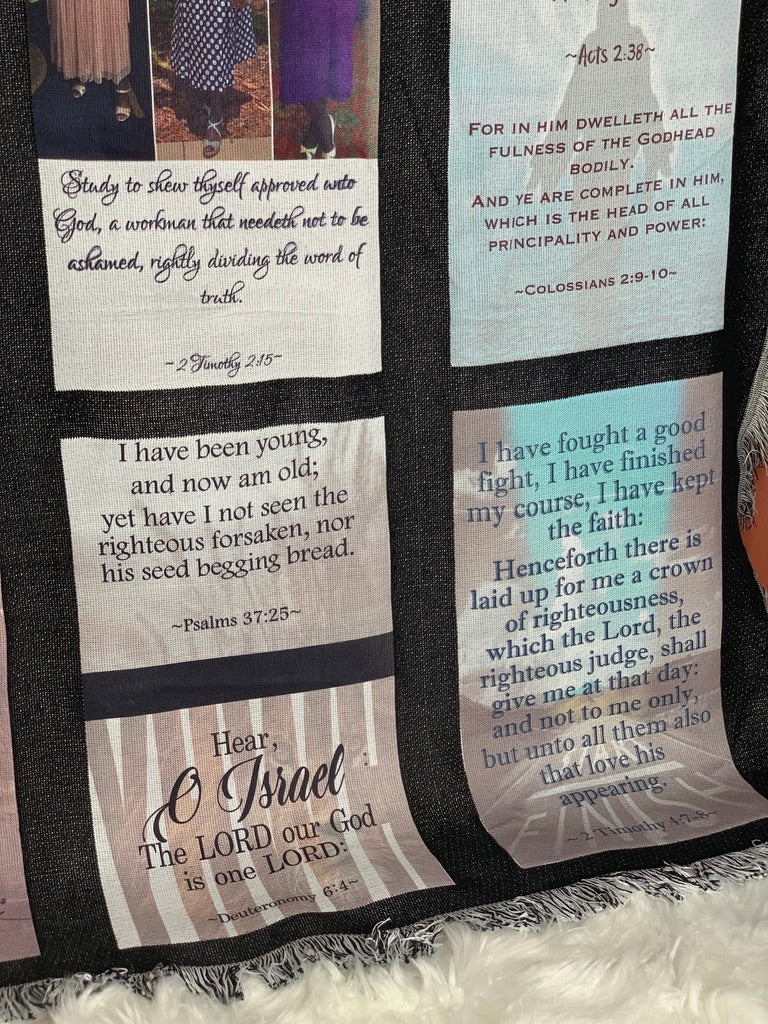 Study to shew thyself approved unto
God, a workman that needeth not to be
ashamed, rightly dividing the word of
truth.
~2 Timothy 2:15~
I have been young,
and now am old;
yet have I not seen the
righteous forsaken, nor
his seed begging bread.
~Psalms 37:25~
Hear,
O Israel
The LORD our God
is one LORD:
~Deuteronomy 6:4~
~Acts 2:38~
FOR IN HIM DWELLETH ALL THE
FULNESS OF THE GODHEAD
BODILY.
AND YE ARE COMPLETE IN HIM,
WHICH IS THE HEAD OF ALL
PRINCIPALITY AND POWER:
~COLOSSIANS 2:9-10~
I have fought a good
fight, I have finished
my course, I have kept
the faith:
Henceforth there is
laid up for me a crown
of righteousness,
which the Lord, the
righteous judge, shall
give me at that day:
and not to me only,
but unto all them also
that love his
appearing.
FINISH
~2 Timothy 4:7-8~